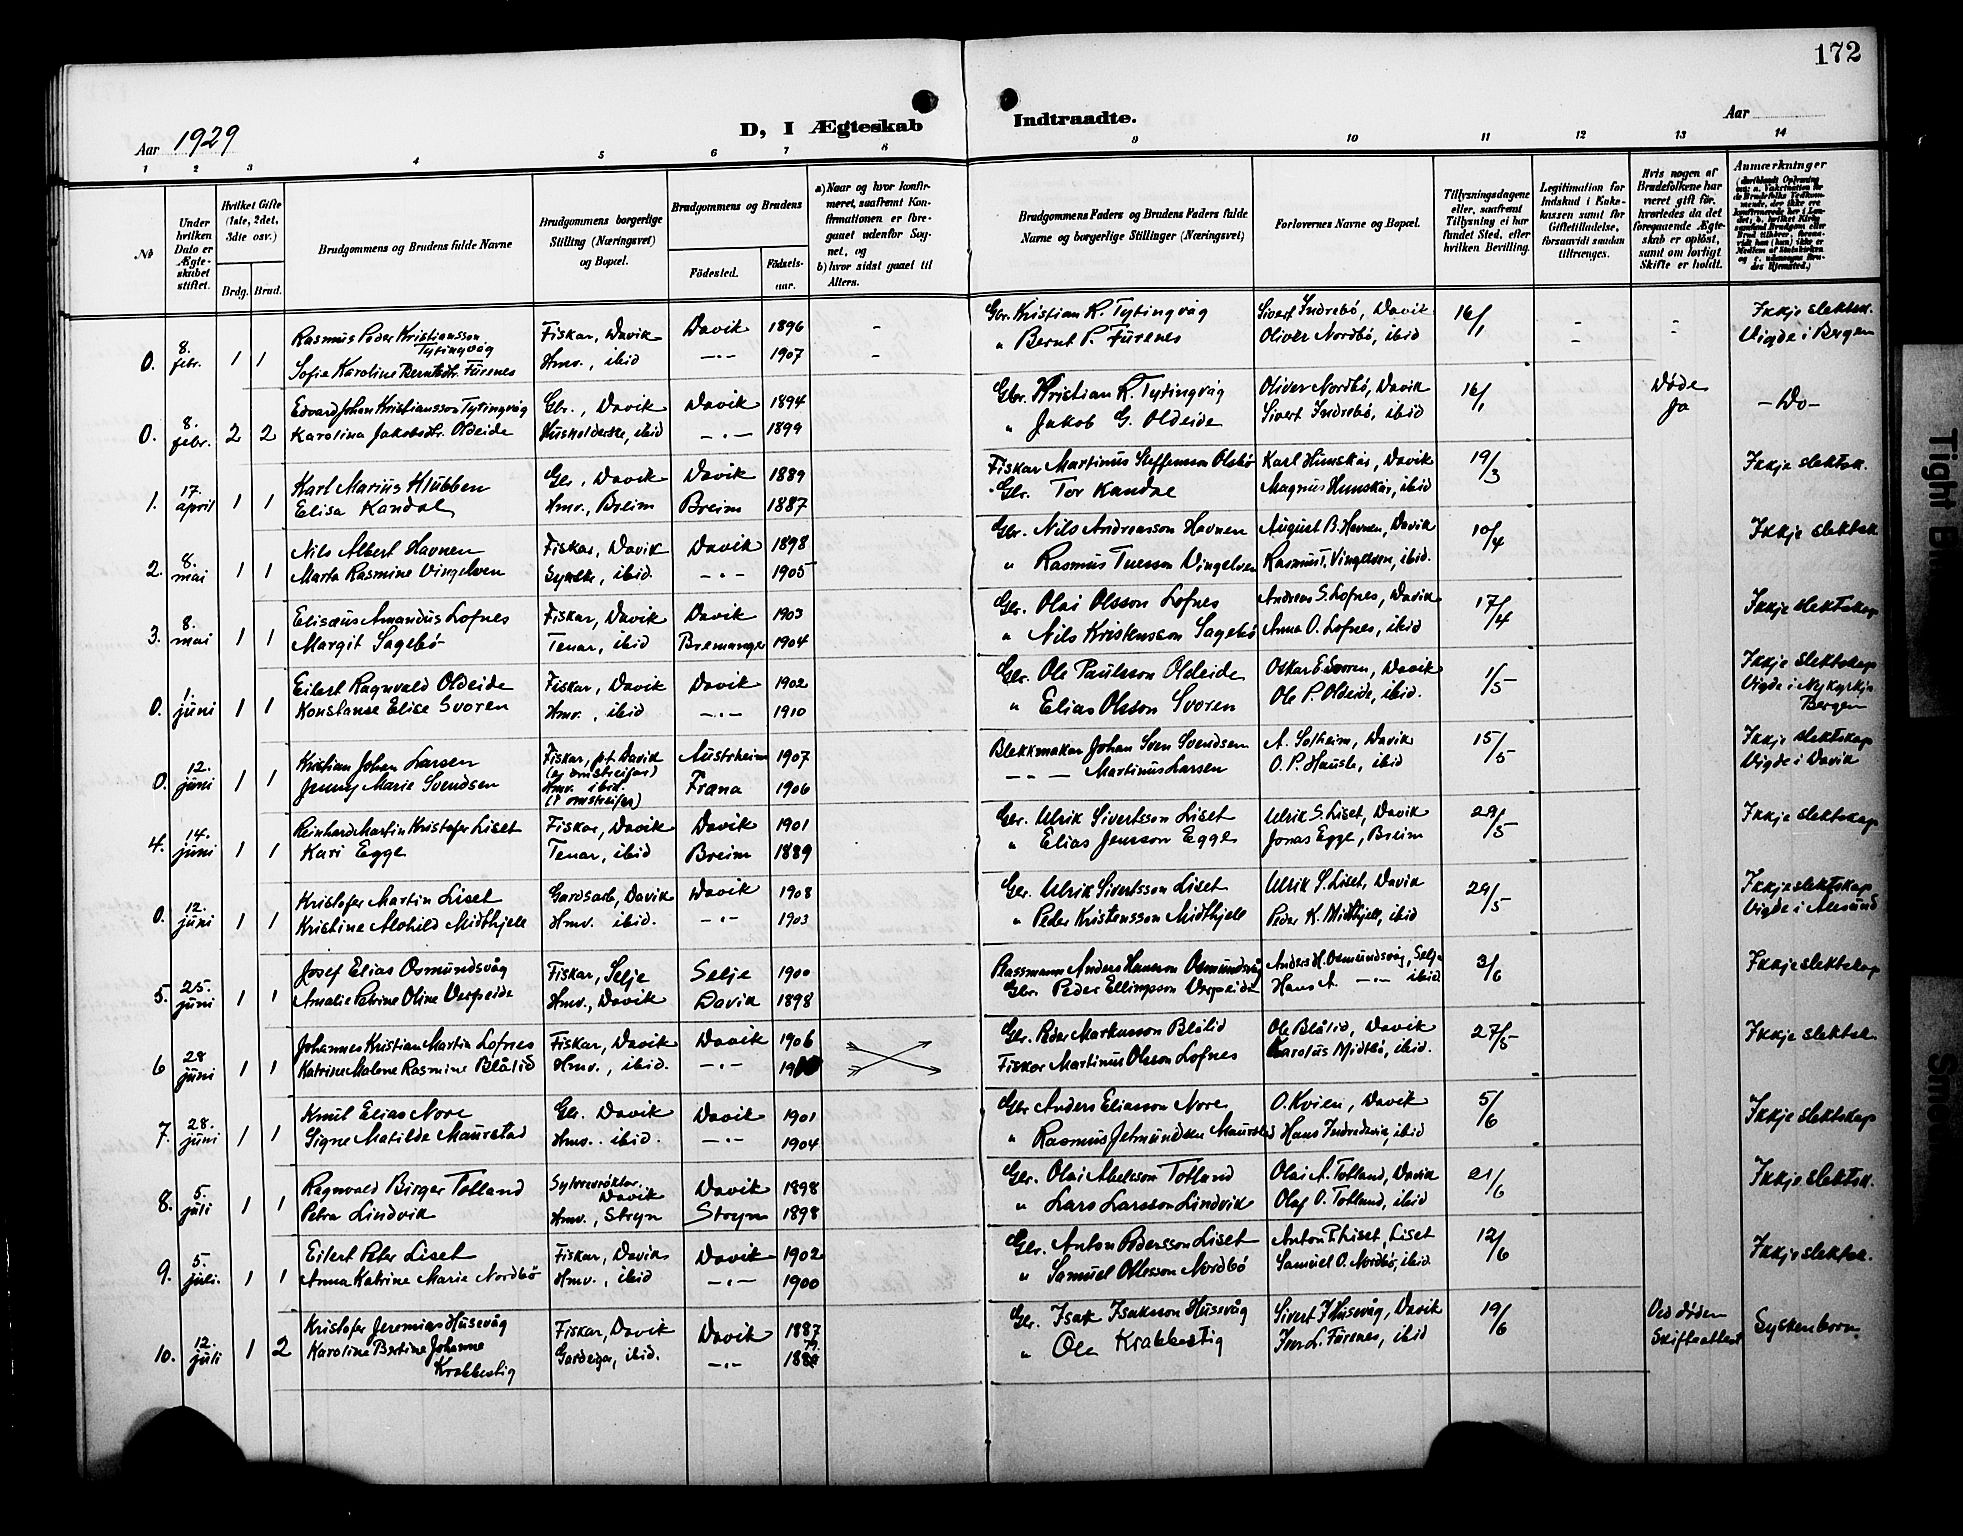 172
Aar 1929
D, I Ægteskab Indtraadte.
Aar
1 2 3 4 5 6 7 8 9 10 11 12 13 14
No
Under hvilken Dato er Ægteskabet stiftet.
Hvilket Gifte (1ste, 2det, 3dte osv.)
Brdg. Brud.
Brudgommens og Brudens fulde Navne
Brudgommens borgerlige Stilling (Næringsvei) og Bopæl.
Brudgommens og Brudens
Födested. Födsels-aar.
a) Naar og hvor konfirmeret, saafremt Konfirmationen er foregaaet udenfor Sognet, og
b) hvor sidst gaaet til Alters.
Brudgommens Faders og Brudens Faders fulde Navne og borgerlige Stillinger (Næringsvei)
Forlovernes Navne og Bopæl.
Tillysningsdagene eller, saafremt Tillysning ei har fundet Sted, efter hvilken Bevilling.
Legitimation for Indskud i Kokekassen samt for Giftetilladelse, forsaavidt saadan tiltrænges.
Hvis nogen af Brudefolkene har været gift för, hvorledes da det foregaaende Ægteskab er oplöst, samt om lovligt Skifte er holdt.
Anmærkninger
0. 8. febr. 1 1 Rasmus Peder Kristiansson Tytingvåg Fiskar, Davik Davik 1896 - Gbr. Kristian R. Tytingvåg Sivert Indrebö, Davik 16/1 - - Ikkje slektsk.
Sofie Karoline Berntsdtr. Fürenes Hmv., ibid -"- 1907 - " Bernt P. Fürenes Oliver Nordbö, ibid - Vigde i Bergen
0. 8. febr. 2 2 Edvard Johan Kristiansson Tytingvåg Gbr., Davik Davik 1894 Gbr. Kristian R. Tytingvåg Oliver Nordbö, Davik 16/1 Döde -Do-
Karolina Jakobsdtr. Oldeide Husholderske, ibid -"- 1899 " Jakob G. Oldeide Sivert Indrebö, ibid Ja
1. 17. april 1 1 Karl Marius Klubben Gbr., Davik Davik 1889 Fiskar Martinus Steffensson Olsbö Karl Humskår, Davik 19/3 Ikkje slektsk.
Elisa Kandal Hmv., Breim Breim 1887 Gbr. Tor Kandal Magnus Humskår, ibid
2. 8. mai 1 1 Nils Albert Havnen Fiskar, Davik Davik 1898 Gbr. Nils Andreasson Havnen August B. Havnen, Davik 10/4 Ikkje slektsk
Marta Rasmine Vingelven Syerske, ibid. -"- 1905 " Rasmus Vingelven Rasmus T. Vingelven, ibid.
3. 8. mai 1 1 Elisæus Amandus Lofnes Fiskar, Davik Davik 1903 Gbr. Olai Olsson Lofnes Andreas S. Lofnes, Davik 17/4 Ikkje slektskap
Margit Sagebö Tenar, ibid Bremanger 1904 " Nils Kristensson Sagebö Anna O. Lofnes, ibid
0. 1. juni 1 1 Eilert Ragnvald Oldeide Fiskar, Davik Davik 1902 Gbr. Ole Paulsson Oldeide Oskar E. Svoren, Davik 1/5 Ikkje slektskap
Konstanse Elise Svoren Hmv., ibid -"- 1910 " Elias Olsson Svoren Ole P. Oldeide, ibid. Vigde i Nykyrkja Bergen
0. 12. juni 1 1 Kristian Johan Larsen Fiskar, p.t. Davik Austrheim 1907 Blekkmakar Johan Sven Svendsen A. Solheim, Davik 15/5 Ikkje slektskap
Jenny Marie Svendsen Hmv. ibid. Fræna 1906 - " - Martinus Larsen O. P. Hausle, ibid Vigde i Davik
4. 14. juni 1 1 Reinhard Martin Kristofer Liset Fiskar, Davik Davik 1901 Gbr. Ulrik Sivertsson Liset Ulrik S. Liset, Davik 29/5 Ikkje slektskap
Kari Egge Tenar, ibid Breim 1889 " Elias Jensson Egge Jonas Egge, Breim
0. 12. juni 1 1 Kristofer Martin Liset Gardsarb, Davik Davik 1908 Gbr. Ulrik Sivertsson Liset Ulrik S. Liset, Davik 29/5 Ikkje slektskap
Kristine Alvhild Midthjell Hmv. ibid. -"- 1903 " Peder Kristensson Midthjell Peder K. Midthjell, ibid Vigde i Ålesund
5. 25. juni 1 1 Josef Elias Osmundsvåg Fiskar, Selje Selje 1900 Plassmann Anders Hansson Osmundsvåg Anders H. Osmundsvåg, Selje 3/6 Ikkje slektskap
Amalie Petrine Oline Verpeide Hmv., Davik Davik 1898 Gbr. Peder Ellingsson Verpeide Hans A. -"- ibid
6 28 juni 1 1 Johannes Kristian Martin Lofnes Fiskar, Davik Davik 1906 Gbr. Peder Markusson Blålid Ole Blålid, Davik 27/5 Ikkje slektsk.
Katrine Malene Rasmine Blålid Hmv., ibid. -"- Fiskar Martinus Olsson Lofnes Karolus Midtbö, ibid.
7. 28. juni 1 1 Knut Elias Nore Gbr. Davik Davik 1901 Gbr Anders Eliasson Nore O. Kvien, Davik 5/6 Ikkje slektskap
Signe Matilde Maurstad Hmv. ibid. -"- 1904 " Rasmus Jetmundsen Maurstad Hans Indredavik, ibid
8. 5. juli 1 1 Ragnvald Birger Totland Sylvrevröktar, Davik Davik 1898 Gbr. Olai Abelsson Totland Olai A. Totland, Davik 21/6 Ikkje slektsk.
Petra Lindvik Hmv., Stryn Stryn 1898 " Lars Larsson Lindvik Olaf O. Totland, ibid
9. 5. juli. 1 1 Eilert Peter Liset Fiskar, Davik Davik 1902 Gbr. Anton Pedersson Liset Anton P. Liset, Liset 12/6 Ikkje slektsk.
Anna Katrine Marie Nordbö Hmv., ibid -"- 1900 " Samuel Ollesson Nordbö Samuel O. Nordbö, ibid
10. 12. juli 1 2 Kristofer Jeremias Husevåg Fiskar, Davik Davik 1887 Gbr. Isak Isaksson Husevåg Sivert I Husevåg, Davik 19/6 Ved döden Syskenborn
Karoline Bertine Johanne Krabbestig Gardeigar, ibid. -"- " Ole Krabbestig Iver L. Fürenes, ibid Skifteattest
Tight Bi